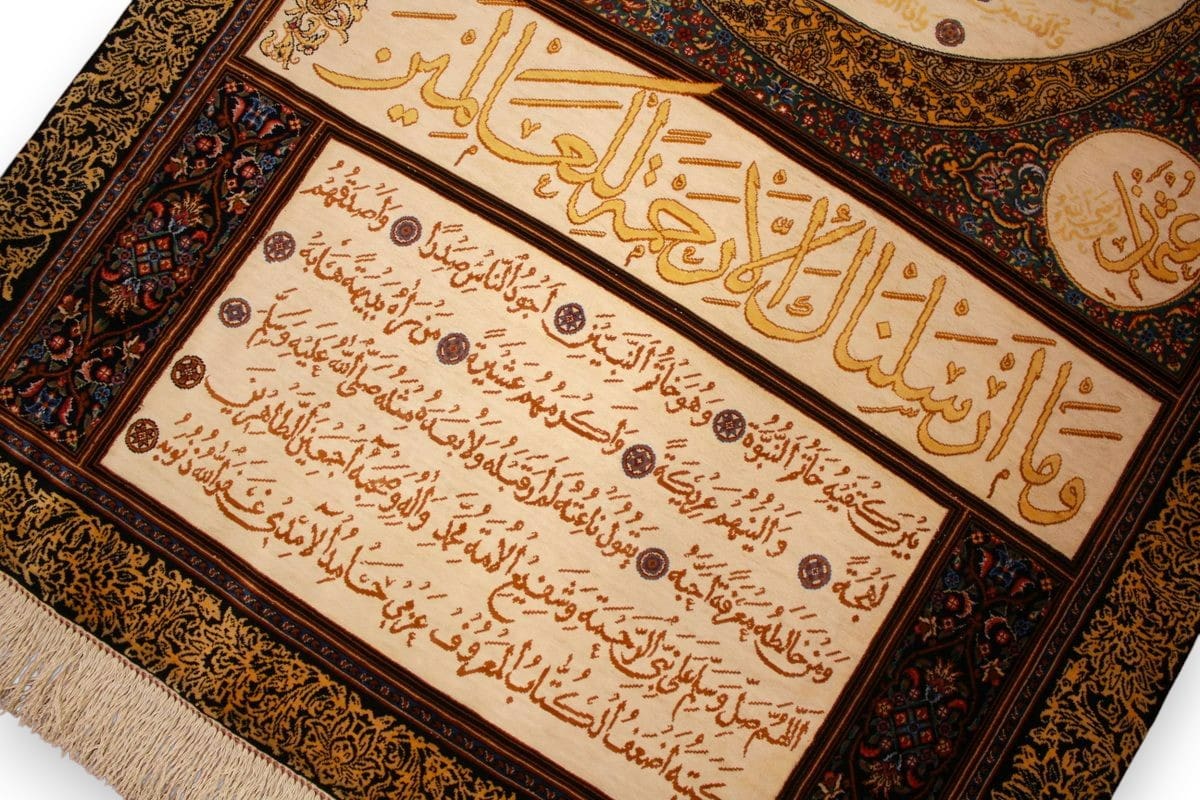 والقدمين
عثمان
رضي الله عنه
وما ارسلناك الا رحمة للعالمين
بين كتفيه خاتم النبوة وهو خاتم النبيين أجود الناس صدرا وأصدقهم
لهجة وألينهم عريكة وأكرمهم عشيرة من رآه بديهة هابه
ومن خالطه معرفة أحبه يقول ناعته لم أر قبله ولا بعده مثله صلى الله عليه وسلم
اللهم صل وسلم على نبي الرحمة وشفيع الأمة محمد وآله وصحبه أجمعين الطاهرين
كتبه أضعف الكتاب المعروف عزمي حامد الآمدي غفر الله ذنوبه